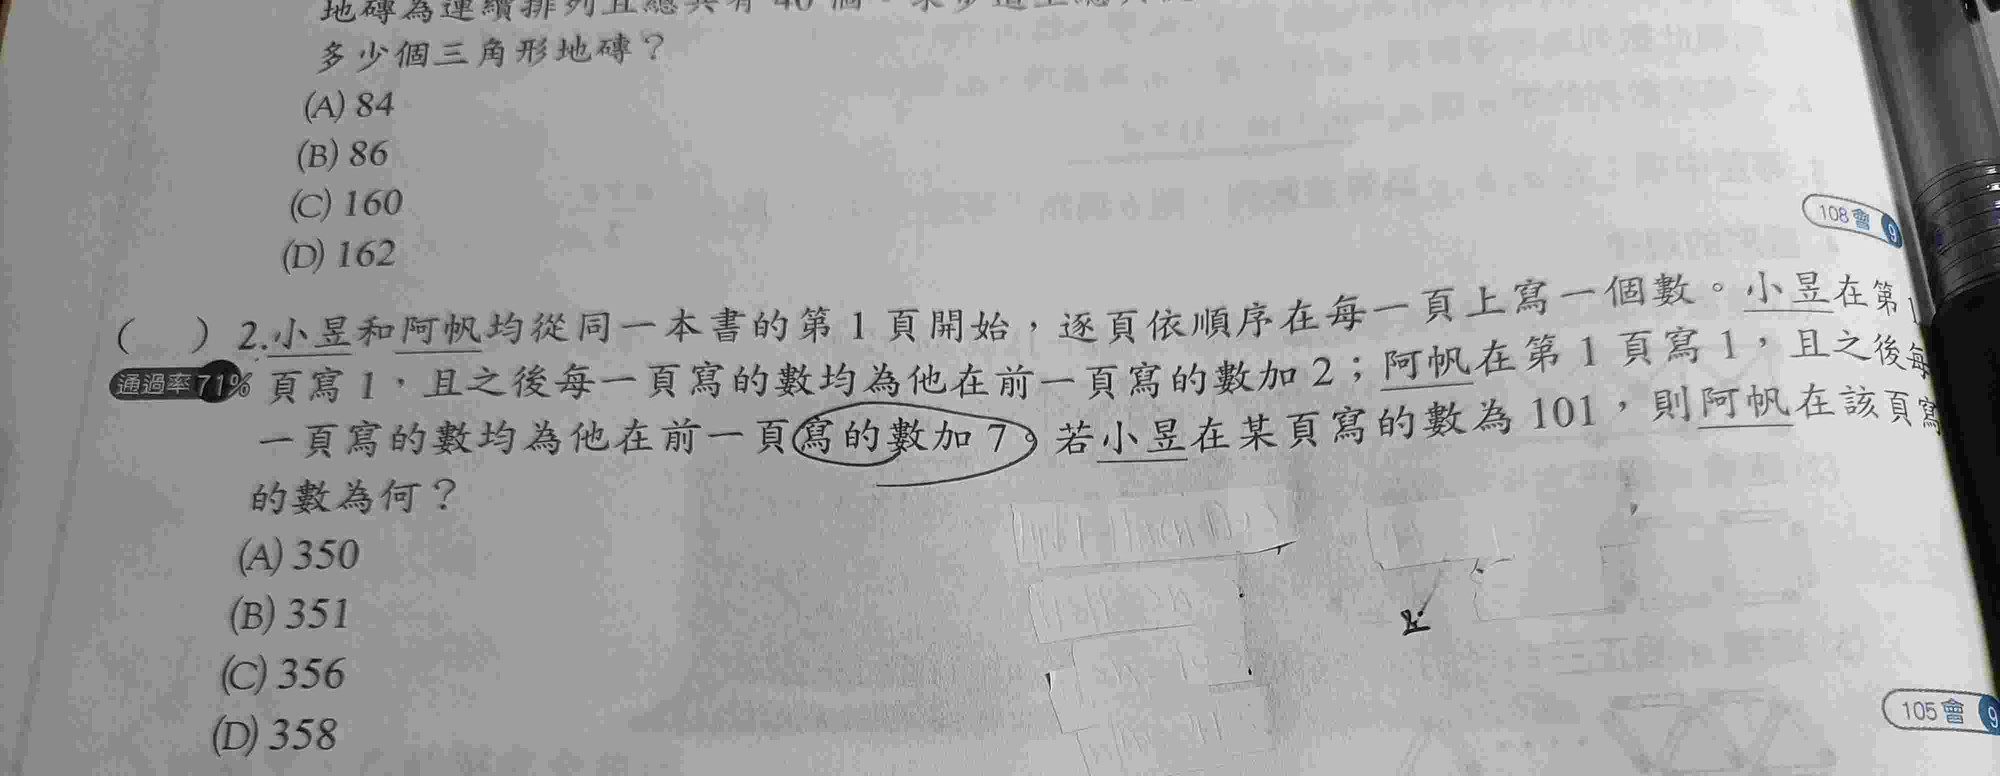 地磚為連續排列且總共有 40 個
多少個三角形地磚？
(A) 84
(B) 86
(C) 160
(D) 162
108 會 9
（　）2.小昱和阿帆均從同一本書的第 1 頁開始，逐頁依順序在每一頁上寫一個數。小昱在第 1
通過率 71% 頁寫 1，且之後每一頁寫的數均為他在前一頁寫的數加 2；阿帆在第 1 頁寫 1，且之後每
一頁寫的數均為他在前一頁寫的數加 7。若小昱在某頁寫的數為 101，則阿帆在該頁寫
的數為何？
(A) 350
(B) 351
(C) 356
(D) 358
105 會 9